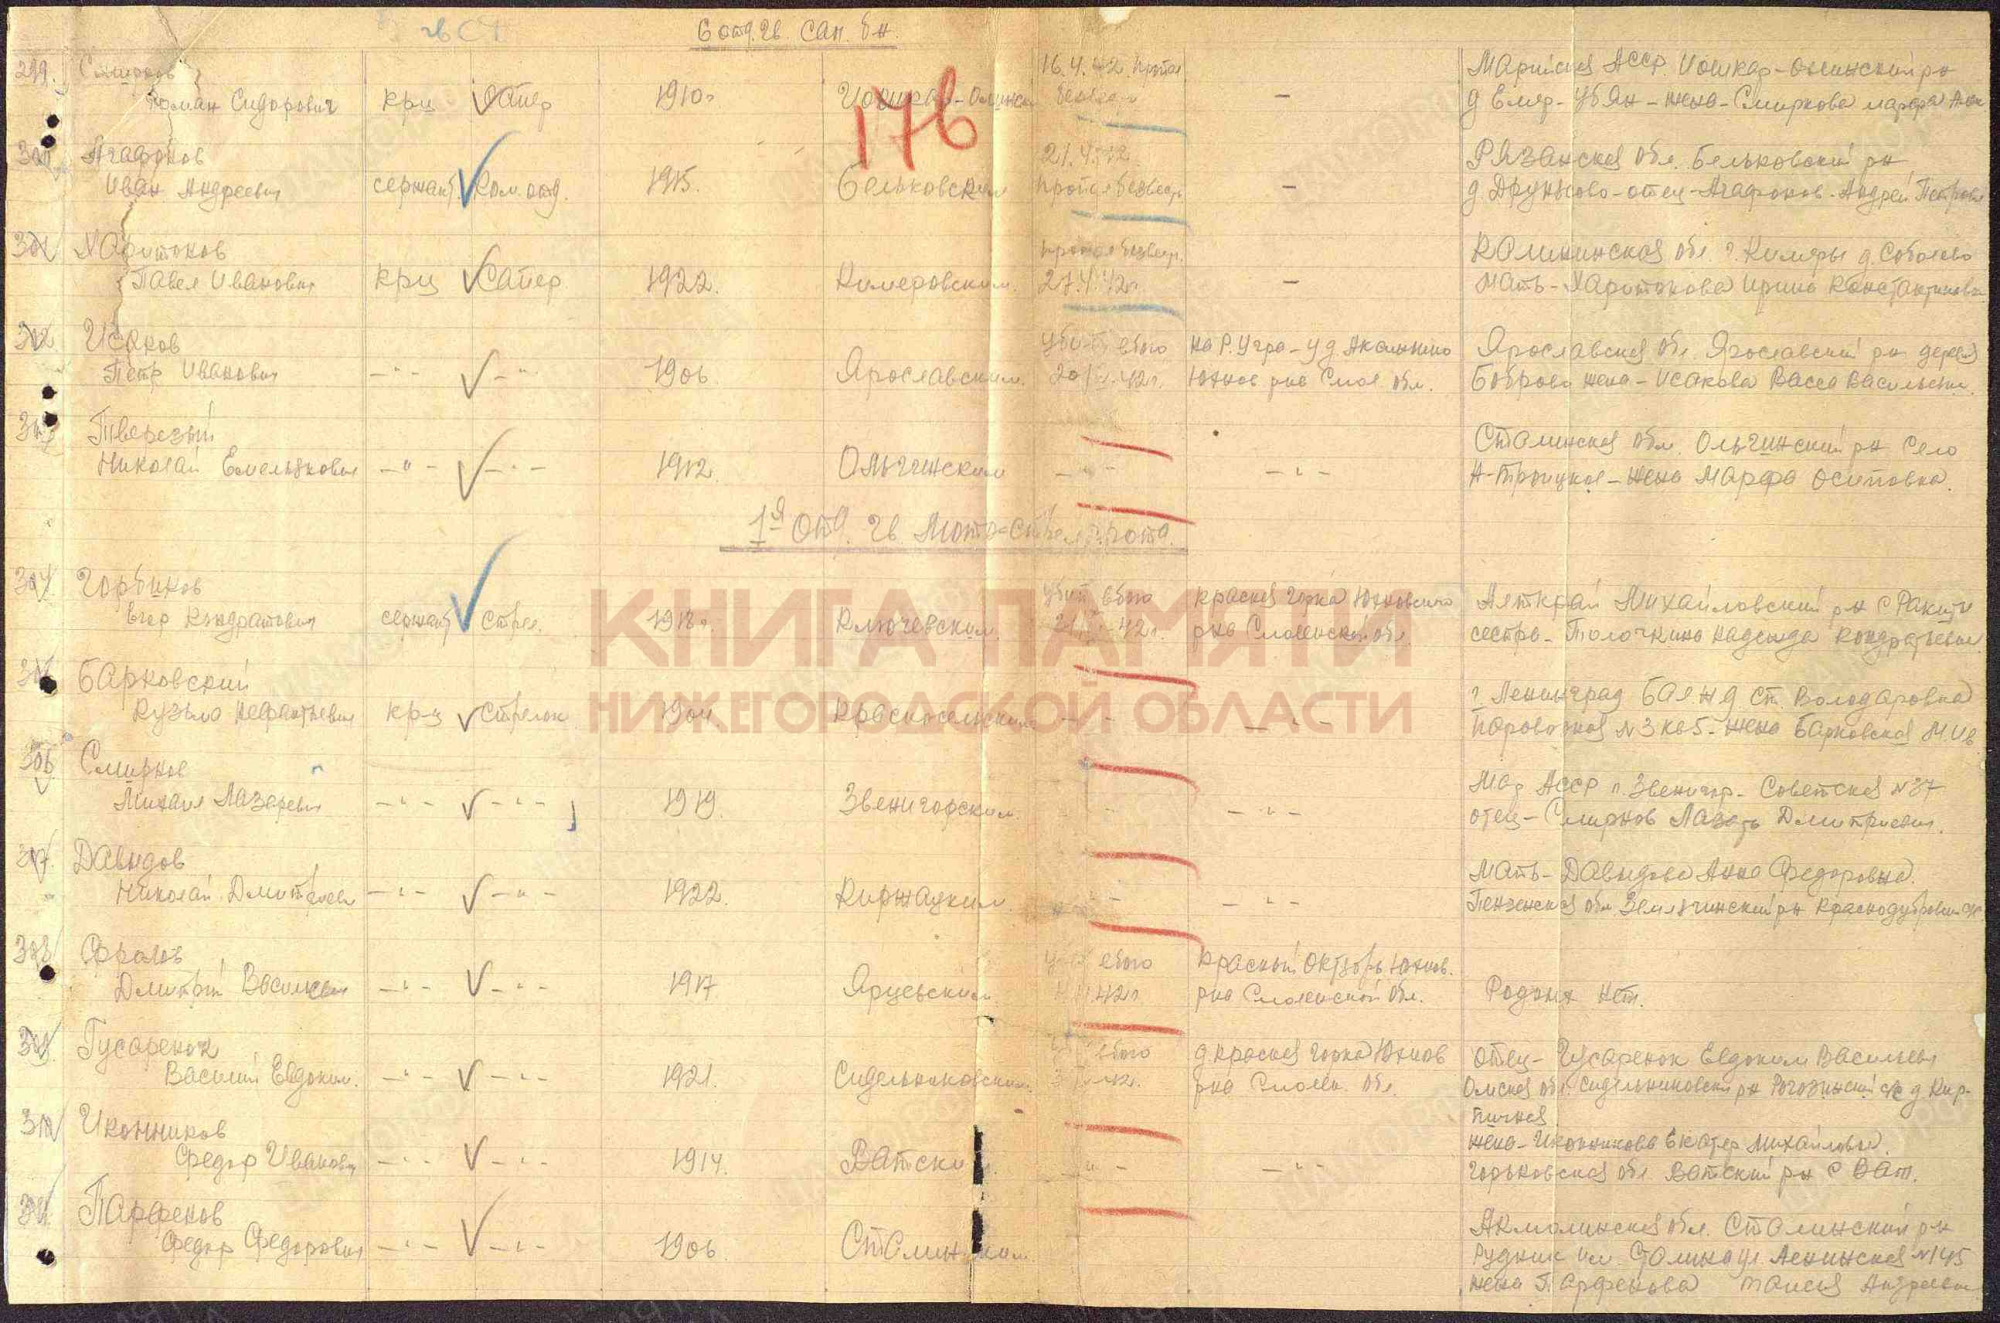 6 отд. гв. сап. б-н.
176
299. Смирнов
Роман Сидорович кр-ц сапер 1910 г. Йошкар-Олинск. 16.4.42. пропал безвест. —
Марийская АССР Йошкар-Олинский р-н
жена - Смиркова
300 Агафонов
Иван Андреевич сержант. Ком. отд. 1915. Бельковским 21.4.42 пропал безвест —
Рязанская обл. Бельковский р-н
отец - Агафонов Андрей Петров.
301 Харитонов
Павел Иванович кр-ц Сапер. 1922. Кимеровским. пропал безвест. 27.4.42г. —
Калининская обл. г. Кимры д. Соболево
мать - Харитонова Ирина Константиновна
302 Исаков
Петр Иванович —"— —"— 1906. Ярославским. убит в бою 42г. на р. Угра - у д.
Юхнов р-на Смол. обл.
Ярославская обл. Ярославский р-н деревня
Боброво жена - Исакова Васса Васильевна
303 Тверезый
Николай Емельянович —"— —"— 1912. Ольгинским —"— —"—
Сталинская обл. Ольгинский р-н село
Н-Троицкое - жена Марфа Осиповна.
1-я отд. гв. мото-стрел. рота.
304 Горбиков
Егор Кондратович сержант стрел. 1918г. Ключевским. убит в бою 42г. Красная горка Юхновского
р-на Смоленской обл.
Алт край Михайловский р-н с Ракиты
сестра - Толочкина Надежда Кондратьевна.
305 Барковский
Кузьма кр-ц стрелок 1904 Красносельским —"— —"—
г. Ленинград ст. Володаровка
Паровозная №3 кв 5 - жена Барковская М.Ив.
306 Смирнов
Михаил Лазаревич —"— —"— 1919. Звенигорским. —"— —"—
Мар АССР п. Звенигор. Советская №37
отец - Смирнов Лазарь Дмитриевич.
307. Давыдов
Николай Дмитриев —"— —"— 1922. Киржацким. —"— —"—
Мать - Давыдова Анна Федоровна.
Пензенская обл Земетчинский р-н
308 Фролов
Дмитрий Васильевич —"— —"— 1917 Ярцевским. убит в бою 42г. Красный Октябрь Юхнов.
р-на Смоленской обл.
Родных нет.
309 Гусаренок
Василий Евдоким. —"— —"— 1921. Сидельниковским. в бою 42. д. Красная горка Юхнов
р-на Смолен. обл.
отец - Гусаренок Евдоким Васильевич
Омская обл. Сидельниковский р-н Рогозинский с/с д Кир-
пичная
310 Иконников
Федор Иванович —"— —"— 1914. Ватским. —"— —"—
жена - Иконникова Екатер. Михайловна.
Горьковская обл. Ватский р-н с Ват.
311 Парфенов
Федор Федорович —"— —"— 1906. Сталинским.
Акмолинская обл. Сталинский р-н
рудник им. Сталина ул Ленинская №145
жена Парфенова Таисия Андреевна
КНИГА ПАМЯТИ
НИЖЕГОРОДСКОЙ ОБЛАСТИ